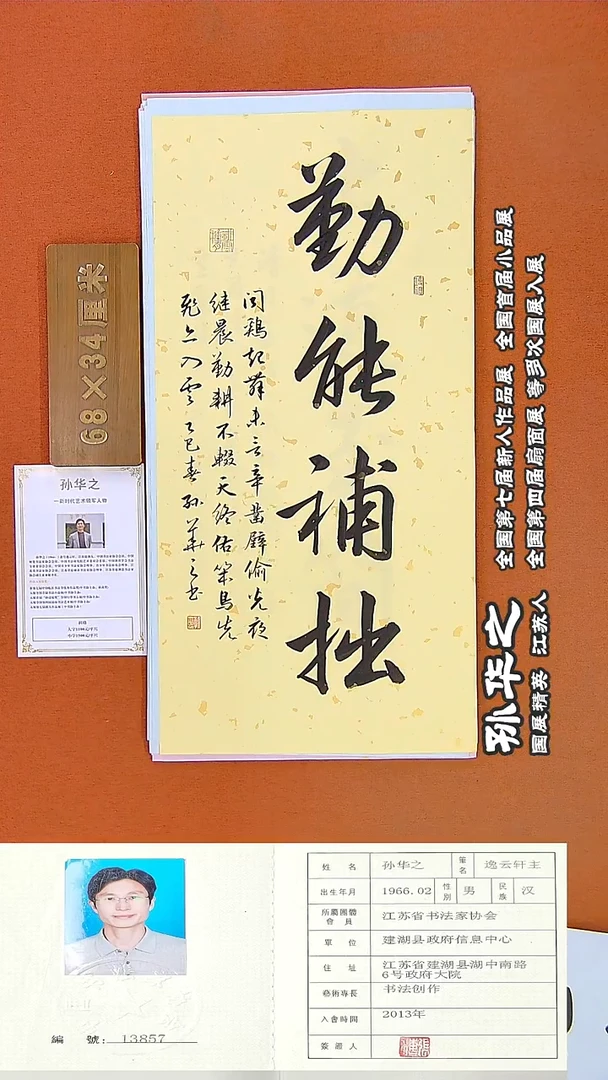 勤能補拙
闻鷄起舞未言辛凿壁偷光夜
继晨勤耕不輟天终佑笨鳥先
飛亦入雲 乙巳春孙華之书
68×34厘米
孙华之
—新时代艺术领军人物
润格
孙华之
国展精英 江苏人
全国第七届新人作品展 全国首届小品展
全国第四届扇面展 等多次国展入展
編 號: 13857
姓 名 孙华之 筆名 逸云轩主
出生年月 1966.02 性別 男 民族 汉
所屬團體會員 江苏省书法家协会
單 位 建湖县政府信息中心
住 址 江苏省建湖县湖中南路6号政府大院
藝術專長 书法创作
入會時間 2013年
簽證人